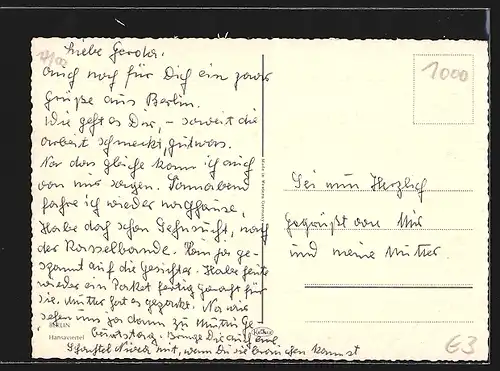 Liebe Gerda.
auch noch für Dich ein paar
Grüße aus Berlin.
Wie geht es Dir, – soweit die
Arbeit schmeckt, gut was.
Nur das gleiche kann ich auch
von mir sagen. Sonnabend
fahre ich wieder nachhause,
Habe doch schon Sehnsucht, nach
der Rasselbande. Bin ja ge-
spannt auf die Gesichter. Habe heute
wieder ein Paket fertig gemacht für
sie. Mutter hat es gepackt. Na wir
sehen uns ja dann zu Muttis Ge-
burtstag. Bringe Die auch eine
mit, wenn Du sie brauchen kannst
BERLIN
Hansaviertel
Made in Western Germany
Krüger
Sei nun Herzlich
gegrüßt von Mir
und meine Mutter
1000
€3